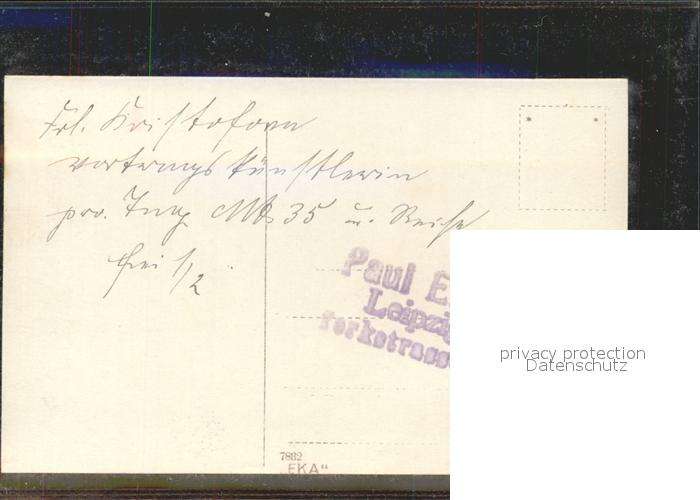 Frl. Kristofory
Vortragskünstlerin
pro. Tag MK 35 u. Reise
frei 1/2
Paul E
Leipzig
Parkstrasse
7882
"EKA"
privacy protection
Datenschutz